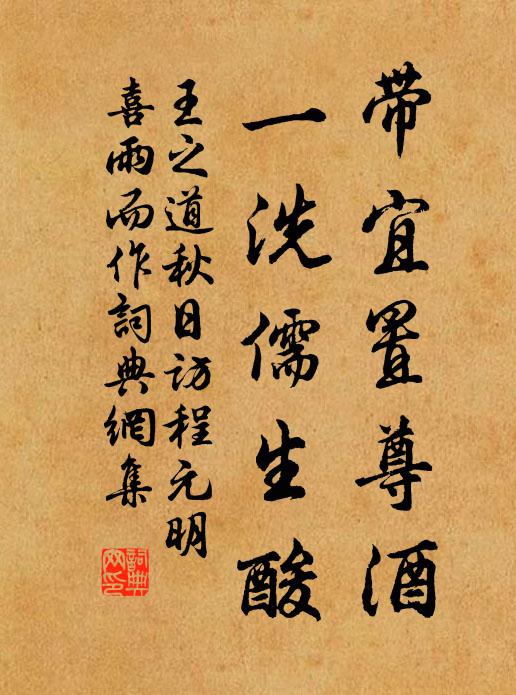 带宜置尊酒
一洗儒生酸
王之道秋日访程元明
喜雨而作詞典網集
詞典網印